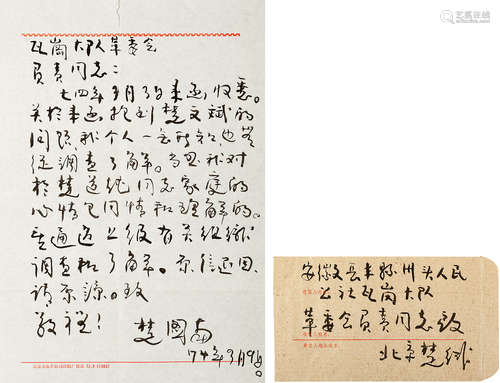 瓦岗大队革委会
负责同志：
七四年3月3日来函，收悉。
关于来函提到楚文斌的
问题，我个人一无所知，也无
从调查了解。当忽我对
于楚道纯同志家庭的
心情是同情和理解的。
请通过上级有关组织
调查和了解。原信退回，
请原谅。致
敬礼！
楚图南
74年3月9日
安徽长丰孙州头人民
公社瓦岗大队
革委会负责同志启
北京楚缄